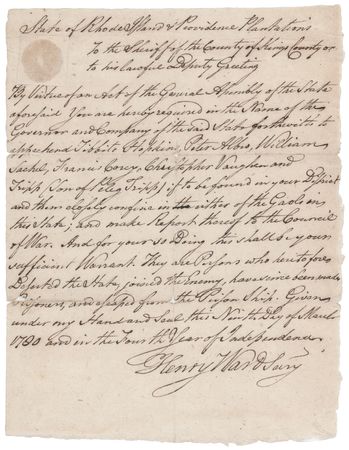 State of Rhode Island & Providence Plantations
To the Sheriff of the County of Kings County or
to his lawful Deputy Greeting
By Virtue of an Act of the General Assembly of the State
aforesaid You are hereby required in the Name of the
Governor and Company of the said State forthwith to
apprehend Tibbits Hopkins, Peter Albro, William
Sachel, Francis Corey, Christopher Vaughan and
Tripp (Son of Peleg Tripp) if to be found in your District
and them closely confine in either of the Gaols in
this State; and make Report thereof to the Council
of War. And for your so Doing this shall be your
sufficient Warrant. They are Persons who heretofore
Deserted the State, joined the Enemy, have since been made
Prisoners, and escaped from the Prison Ship. Given
under my Hand and Seal this Ninth Day of March
1780 and in the Fourth Year of Independence
Henry Ward Secry